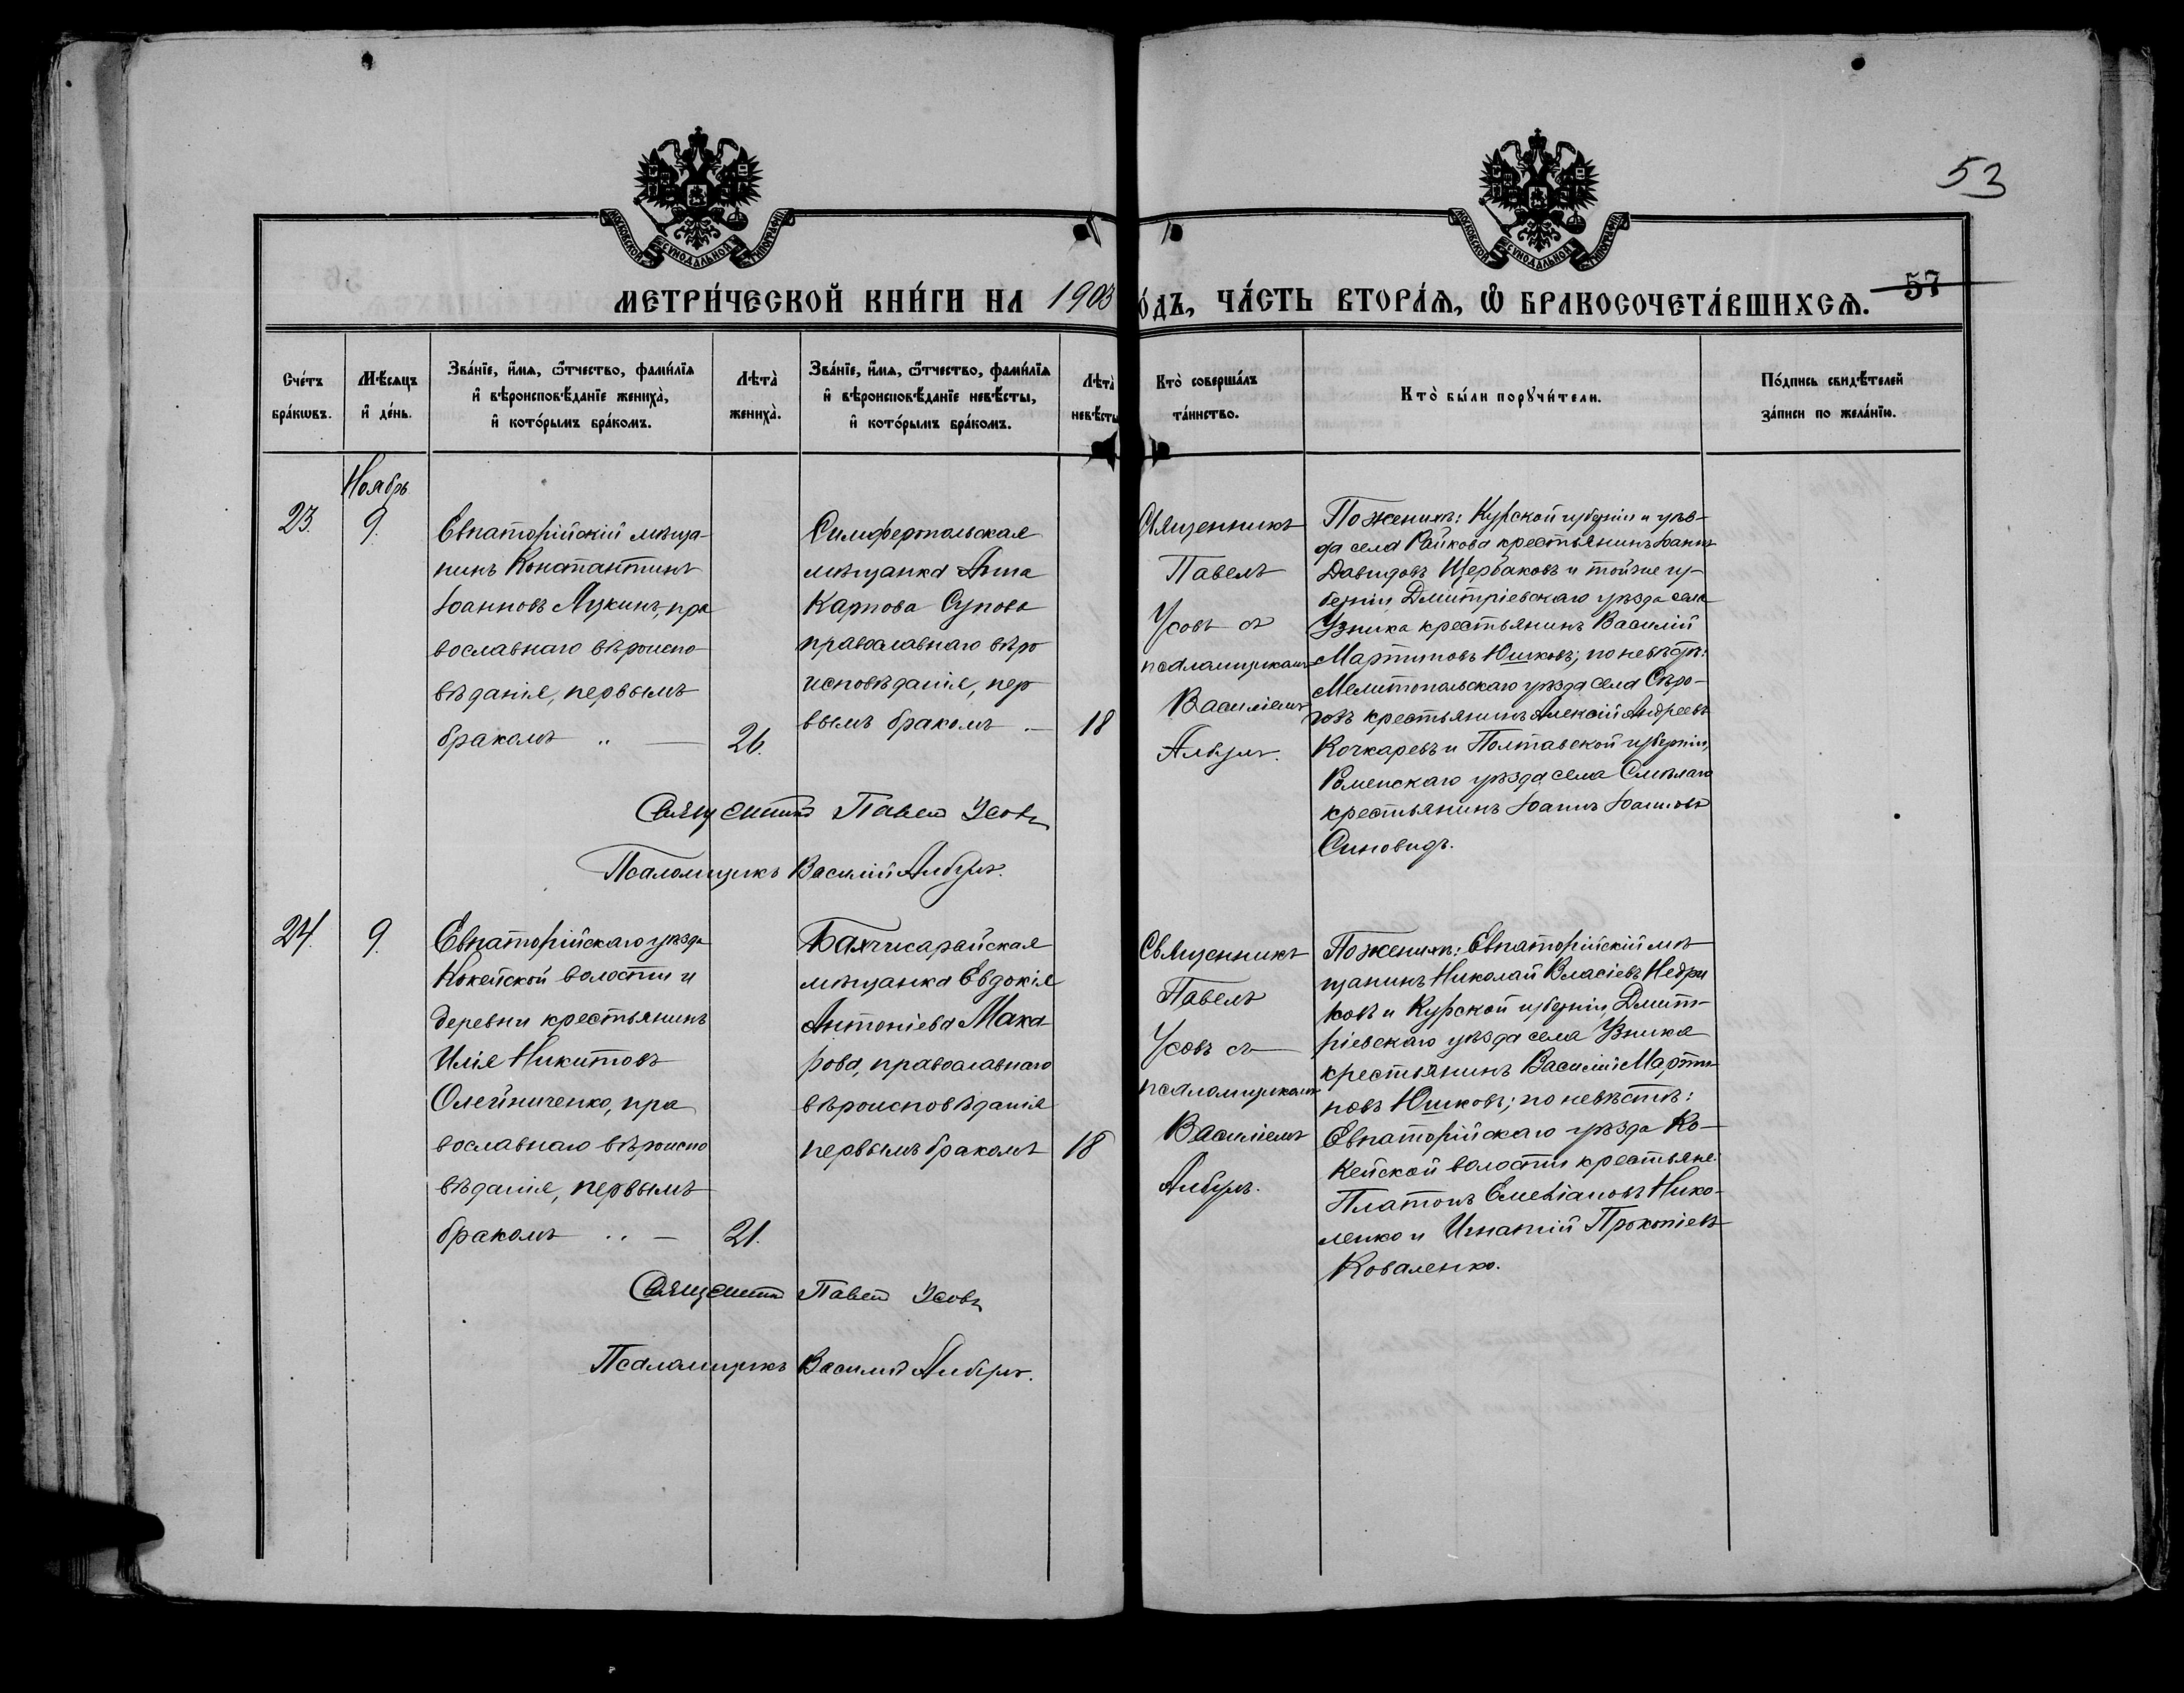 53
МОСКОВСКОЙ СѴНОДАЛЬНОЙ ТИПОГРАФІИ
МОСКОВСКОЙ СѴНОДАЛЬНОЙ ТИПОГРАФІИ
МЕТРИ́ЧЕСКОЙ КНИ́ГИ НА 1903
О́ДЪ, ЧА́СТЬ ВТОРА́Ѧ, Ѡ҆ БРАКОСОЧЕТА́ВШИХСѦ. 57
Сче́тъ
бра́кѡвъ.
Мѣ́сѧцъ
и҆ де́нь.
Зва́нїе, и҆́мѧ, ѻ҆́тчество, фами́лїѧ
и҆ вѣроисповѣ́данїе жениха̀,
и҆ кото́рымъ бра́комъ.
Лѣта̀
жениха̀.
Зва́нїе, и҆́мѧ, ѻ҆́тчество, фами́лїѧ
и҆ вѣроисповѣ́данїе невѣ́сты,
и҆ кото́рымъ бра́комъ.
Лѣта̀
невѣ́сты
Кто̀ соверша́лъ
та́инство.
Кто̀ бы́ли порꙋчи́тели.
По́дпись свидѣ́телей
за́писи по жела́нїю.
Ноябрь
23.
9.
Евпаторійскій мѣща-
нинъ Константинъ
Іоанновъ Лукинъ, пра
вославнаго вѣроиспо-
вѣданія, первымъ
бракомъ " —
26.
Симферопольская
мѣщанка Анна
Карпова Супова
православнаго вѣро
исповѣданія, пер
вымъ бракомъ. —
18
Священникъ
Павелъ
Усовъ съ
псаломщикомъ
Василіемъ
Албулъ.
По женихѣ: Курской губерніи и уѣз-
да села Райкова крестьянинъ Іоаннъ
Давидовъ Щербаковъ и той же гу-
берніи Дмитріевскаго уѣзда села
Узника крестьянинъ Василій
Мартиновъ Юшковъ; по невѣстѣ:
Мелитопольскаго уѣзда села Сѣро-
гозъ крестьянинъ Алексій Андреевъ
Кочкаревъ и Полтавской губерніи,
Роменскаго уѣзда села Смѣлаго
крестьянинъ Іоаннъ Іоанновъ
Синовидъ.
Священникъ Павелъ Усовъ
Псаломщикъ Василій Албулъ.
24.
9.
Евпаторійскаго уѣзда
Кокейской волости и
деревни крестьянинъ
Илія Никитовъ
Олейниченко, пра
вославнаго вѣроиспо
вѣданія, первымъ
бракомъ " —
21.
Бахчисарайская
мѣщанка Евдокія
Антоніева Мака
рова, православнаго
вѣроисповѣданія
первымъ бракомъ
18
Священникъ
Павелъ
Усовъ съ
псаломщикомъ
Василіемъ
Албулъ.
По женихѣ: Евпаторійскій мѣ
щанинъ Николай Власіевъ Недри
ковъ и Курской губерніи, Дмит-
ріевскаго уѣзда села Узника
крестьянинъ Василій Марти-
новъ Юшковъ; по невѣстѣ:
Евпаторійскаго уѣзда Ко-
кейской волости крестьяне:
Платонъ Емеліановъ Нико-
ленко и Игнатій Прокопіевъ
Коваленко.
Священникъ Павелъ Усовъ
Псаломщикъ Василій Албулъ.